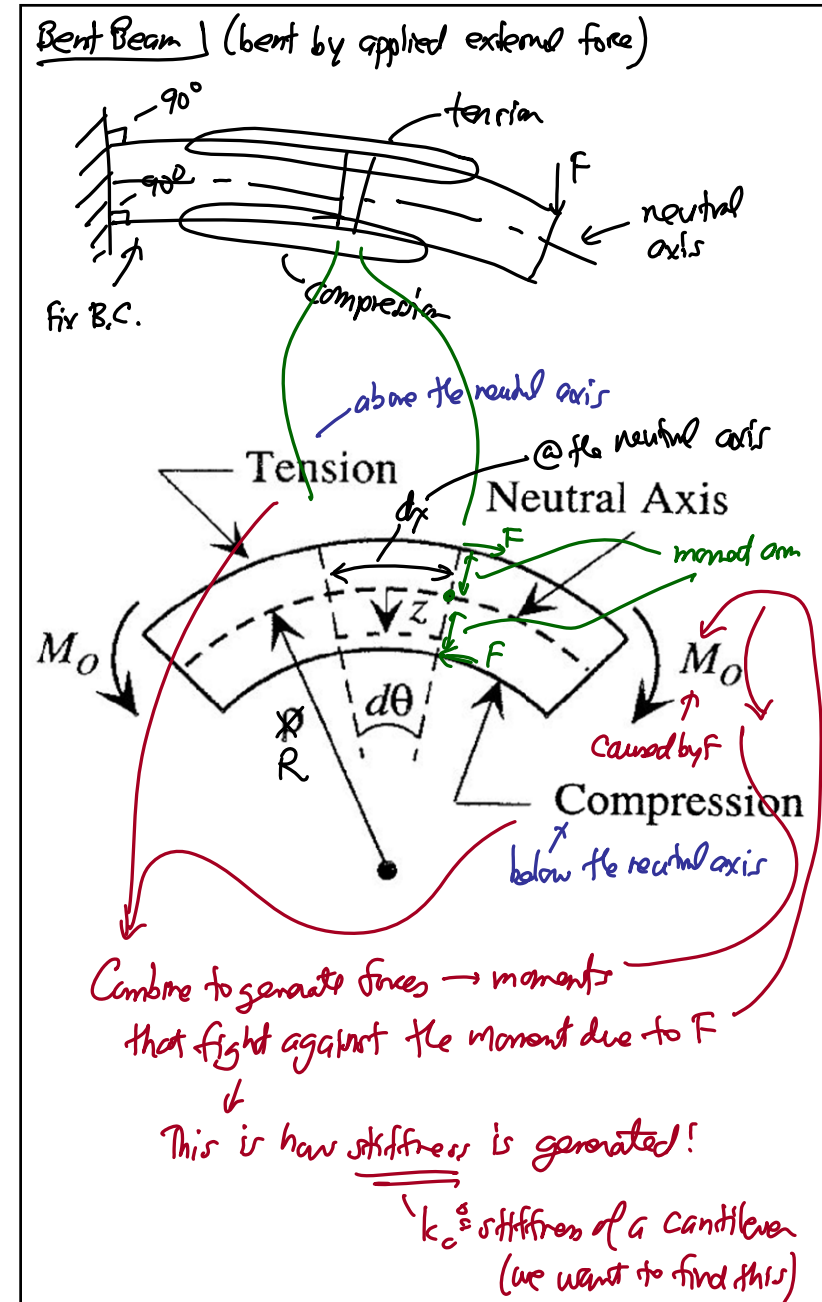 Bent Beam (bent by applied external force)
90°
tension
F
90°
neutral
axis
compression
Fix B.C.
above the neutral axis
@ the neutral axis
Tension
dx
Neutral Axis
F
moment arm
z
F
M_O
M_O
dθ
R
caused by F
Compression
below the neutral axis
Combine to generate forces → moments
that fight against the moment due to F
This is how stiffness is generated!
k_c ≙ stiffness of a cantilever
(we want to find this)